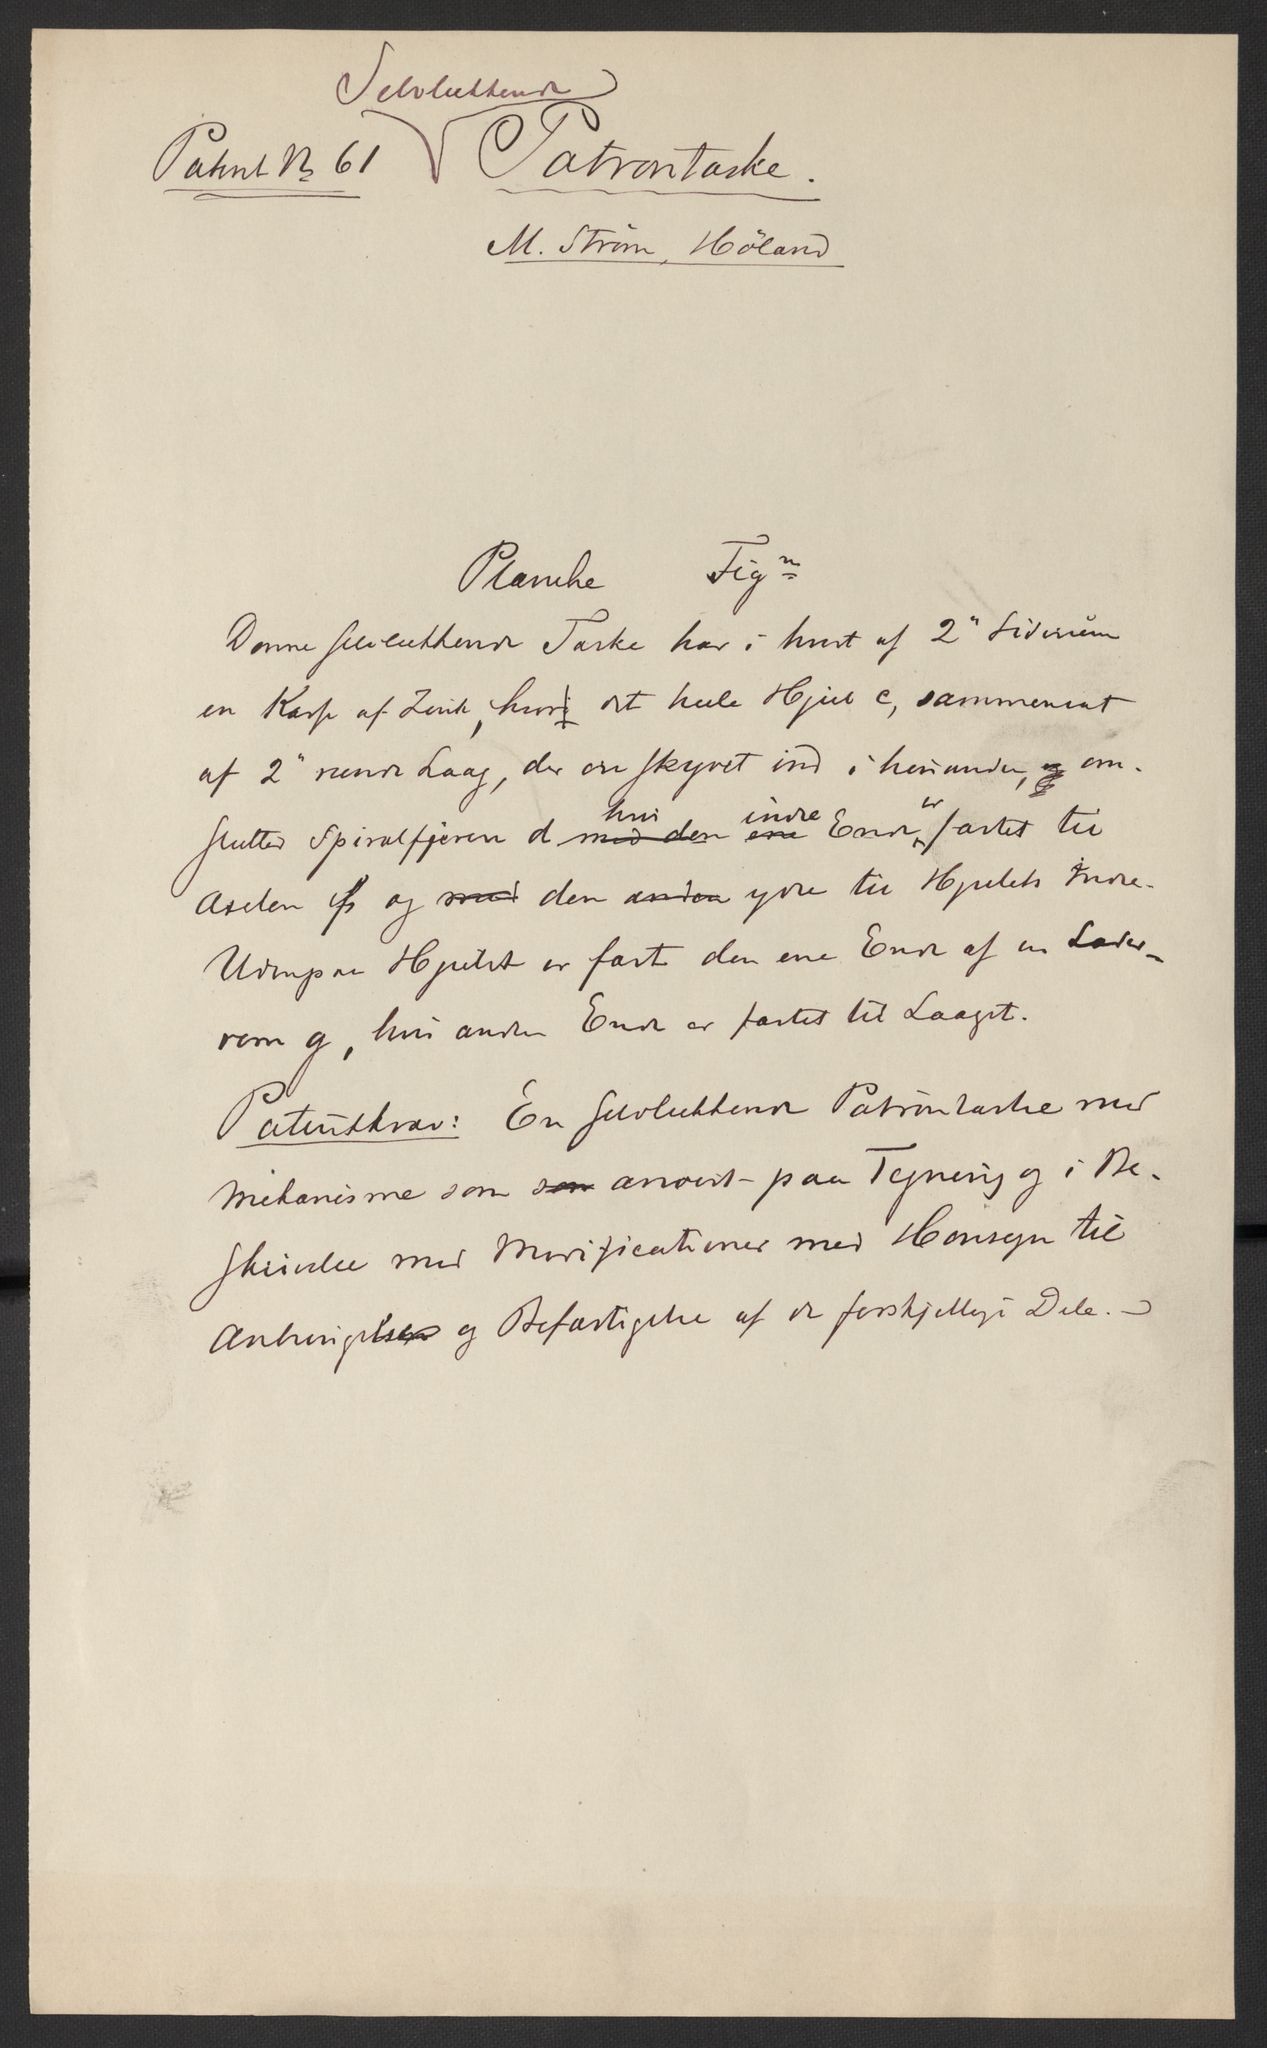 Selvlukkende
Patent No 61 Patrontaske.
M. Ström, Höland
Planche Fig
Denne selvlukkende Taske har i hvert af 2" Siderum
en Kasse af Zink, hvori det hele Hjul c, sammensat
af 2" runde Laag, der er skyvet ind i hinanden, og om-
slutter Spiralfjæren d med den hvis ene indre Ende er fæstet til
Axelen f og med den anden ydre til Hjulets Indre.
Udenpaa Hjulet er fæst den ene Ende af en Læder-
rem g, hvis anden Ende er fæstet til Laaget.
Patentkrav: En selvlukkende Patrontaske med
Mekanisme som som anvist paa Tegning og i Be-
skrivelse med Modificationer med Hensyn til
Anbringelse og Befæstigelse af de forskjellige Dele.